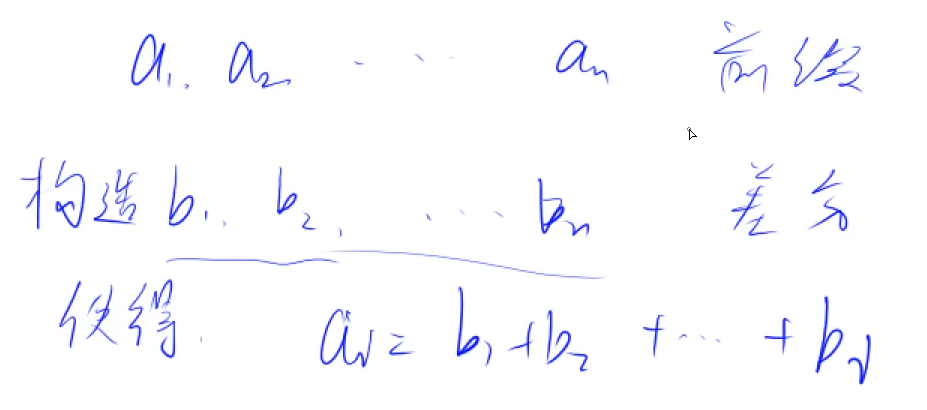 a₁, a₂ ...... aₙ 前缀
构造 b₁, b₂, ...... bₙ 差分
使得. aᵢ = b₁ + b₂ + ... + bᵢ